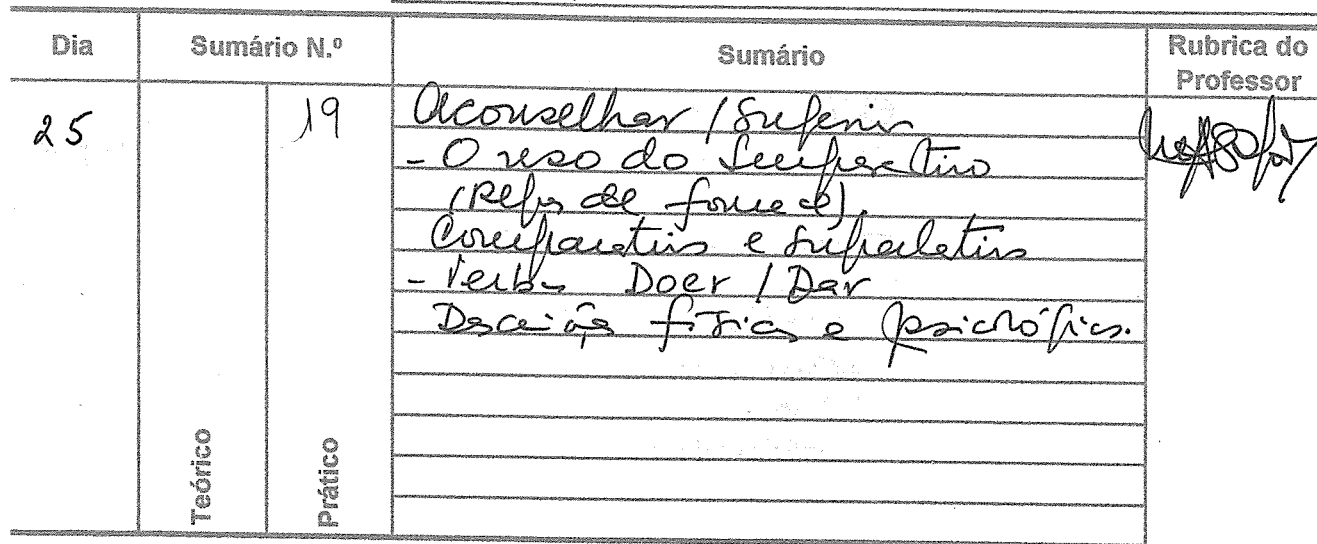 Dia Sumário N.º Sumário Rubrica do Professor
25 19 Aconselhar / Sugerir
- O uso do Imperativo
de
Comparativo e Superlativo
- Verbo Doer / Dar
Descrição física e psicológica.
Teórico Prático